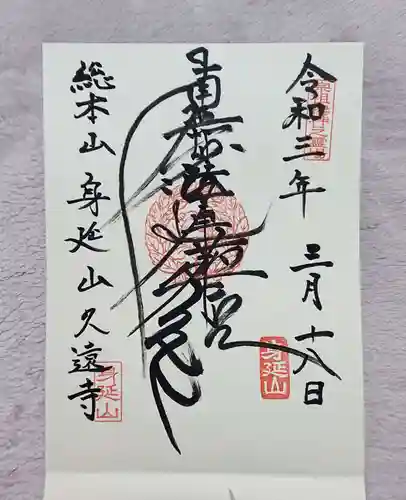 令和三年 三月十八日
南無妙法蓮華経
総本山 身延山久遠寺
身延山
身延山